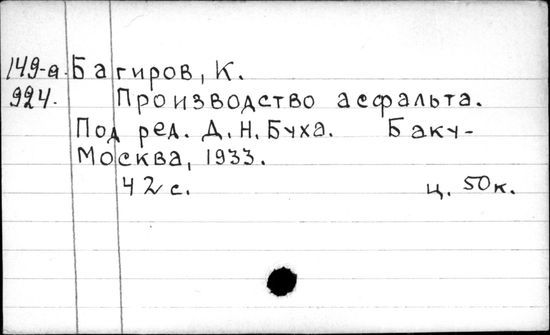 149-а. Багиров, К.
924. Производство асфальта.
Под ред. Д. Н. Буха. Баку-
Москва, 1933.
42 с. ц. 50к.